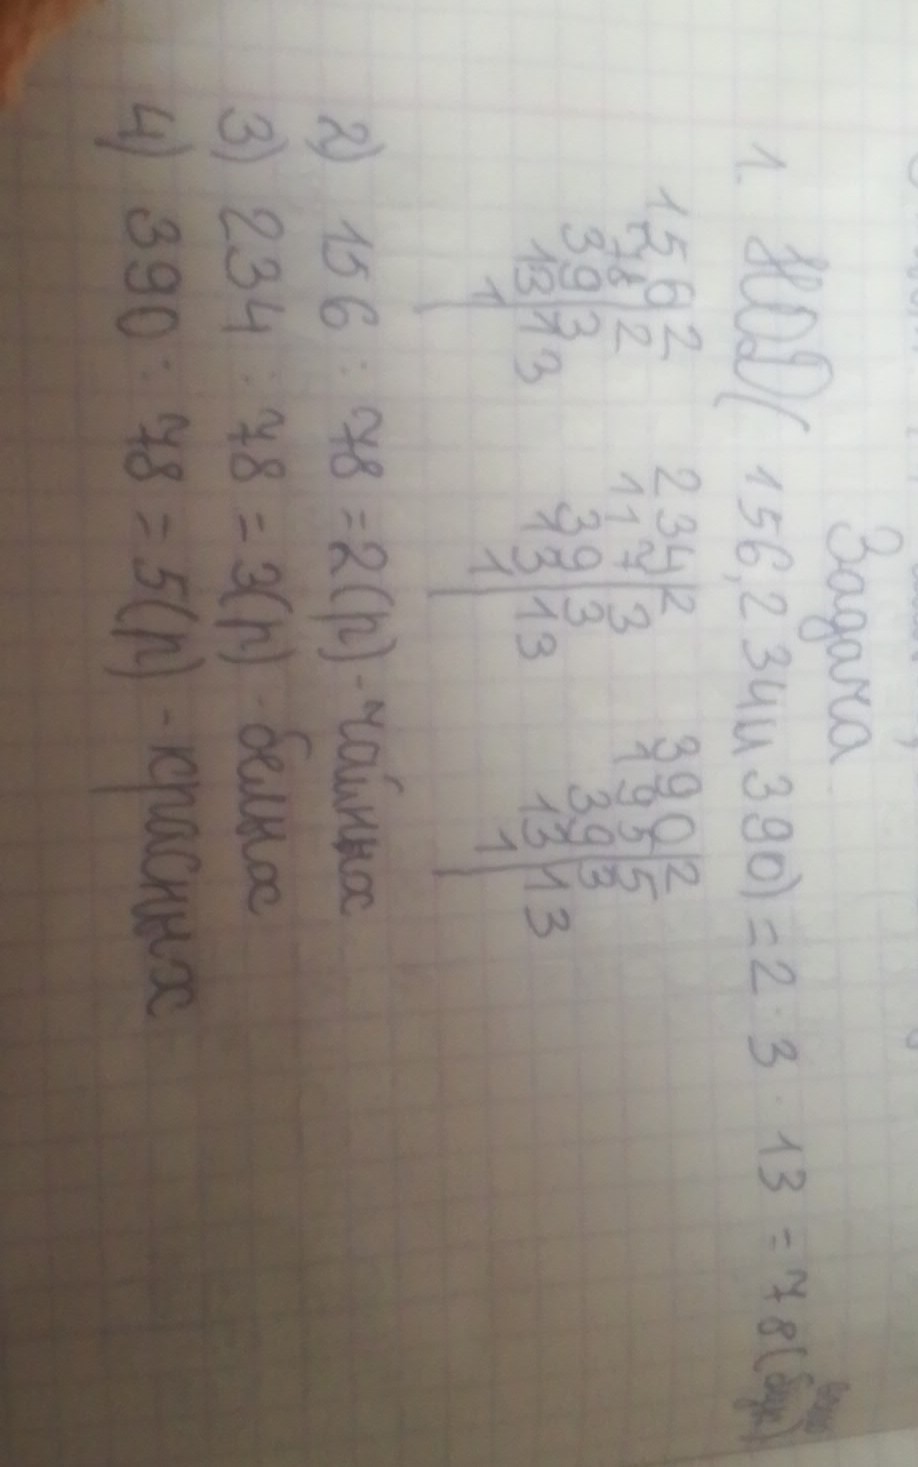 Задача
1. НОД( 156,234и 390) = 2 · 3 · 13 = 78 (букетов)
156 2 234 2 390 2
78 2 117 3 195 5
39 3 39 3 39 3
13 13 13 13 13 13
1 1 1
2) 156 : 78 = 2(р) - чайных
3) 234 : 78 = 3(р) - белых
4) 390 : 78 = 5(р) - красных